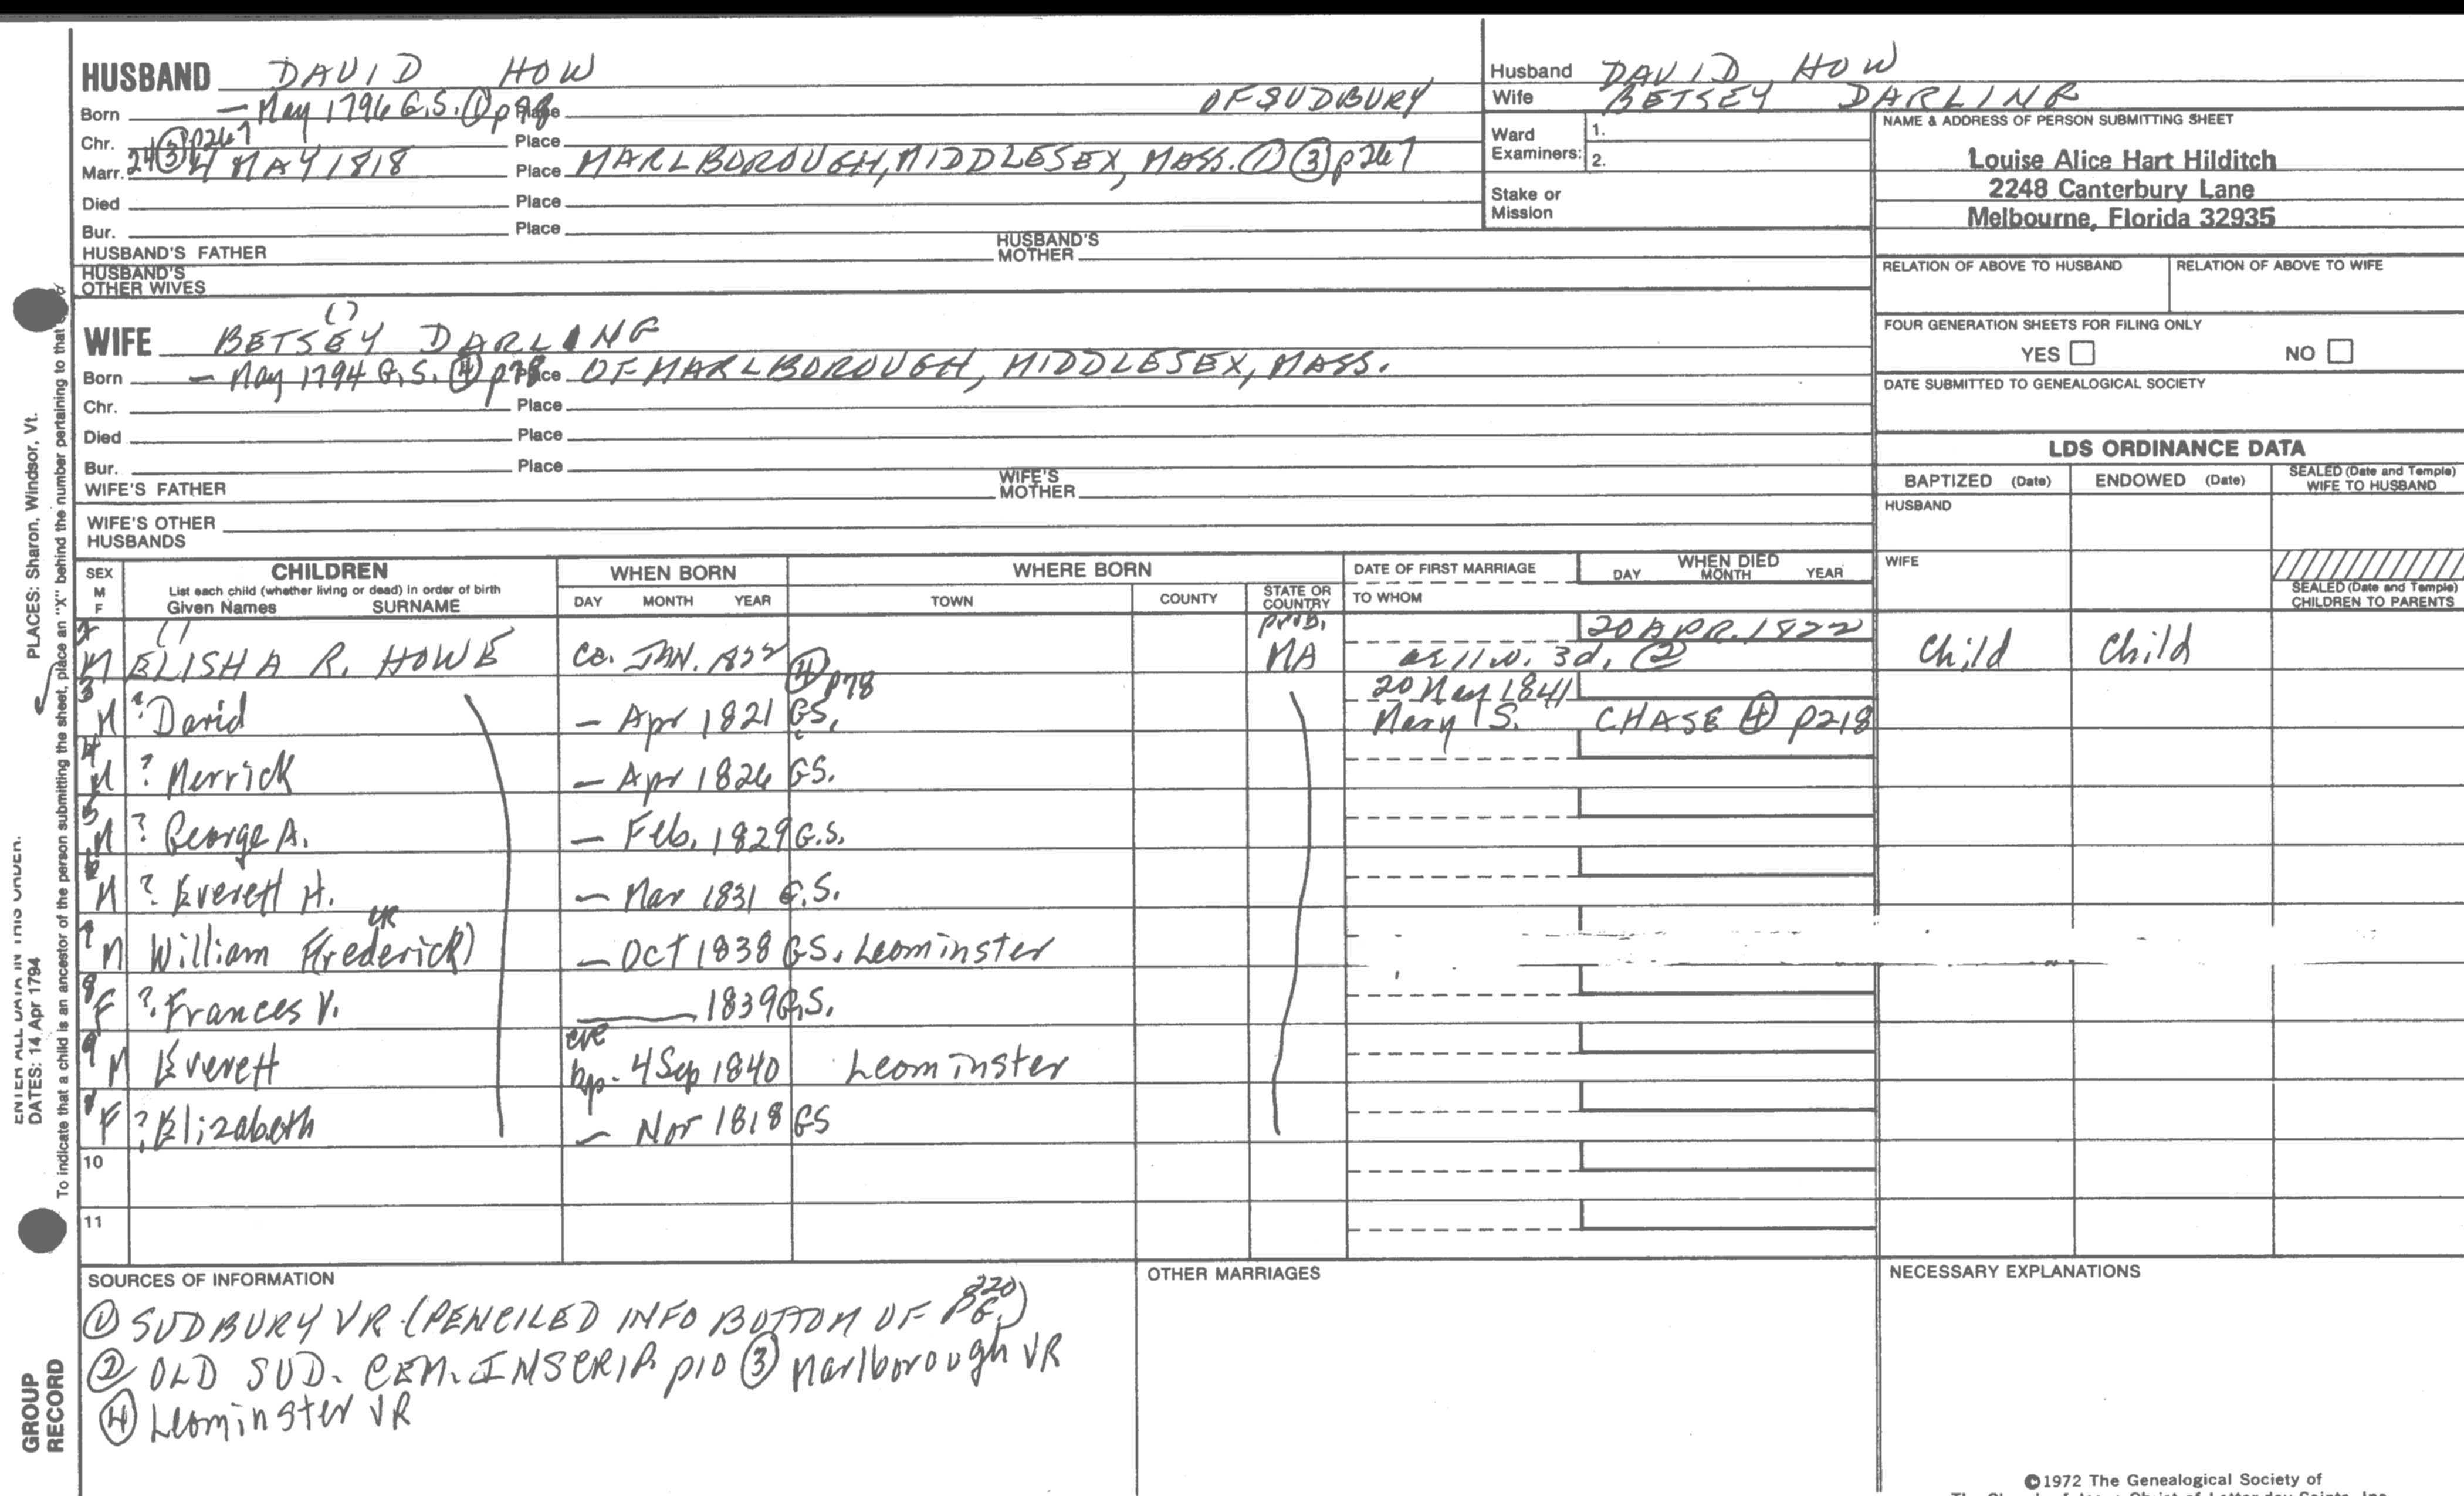 HUSBAND DAVID HOW
Born — May 1796 G.S. ① p 78 Place OF SUDBURY
Chr. Place
24 ③ p267
Marr. 4 MAY 1818 Place MARLBOROUGH, MIDDLESEX, MASS. ① ③ p 267
Died Place
Bur. Place
HUSBAND'S FATHER HUSBAND'S MOTHER
HUSBAND'S OTHER WIVES
Husband DAVID HOW
Wife BETSEY DARLING
Ward Examiners: 1.
2.
Stake or Mission
NAME & ADDRESS OF PERSON SUBMITTING SHEET
Louise Alice Hart Hilditch
2248 Canterbury Lane
Melbourne, Florida 32935
RELATION OF ABOVE TO HUSBAND RELATION OF ABOVE TO WIFE
FOUR GENERATION SHEETS FOR FILING ONLY
YES NO
DATE SUBMITTED TO GENEALOGICAL SOCIETY
WIFE BETSEY DARLING
( )
Born — May 1794 G.S. ④ p78 Place OF MARLBOROUGH, MIDDLESEX, MASS.
Chr. Place
Died Place
Bur. Place
WIFE'S FATHER WIFE'S MOTHER
WIFE'S OTHER HUSBANDS
LDS ORDINANCE DATA
BAPTIZED (Date) ENDOWED (Date) SEALED (Date and Temple) WIFE TO HUSBAND
HUSBAND
WIFE
SEALED (Date and Temple) CHILDREN TO PARENTS
SEX M F
CHILDREN
List each child (whether living or dead) in order of birth
Given Names SURNAME
WHEN BORN
DAY MONTH YEAR
WHERE BORN
TOWN COUNTY STATE OR COUNTRY
DATE OF FIRST MARRIAGE
TO WHOM
WHEN DIED
DAY MONTH YEAR
2 ( ) prob. 20 APR. 1822
M ELISHA R. HOWE ca. JAN. 1822 MA ae 11 w. 3d. ② Child Child
3 ④ p78 20 May 1841
M ? David — Apr 1821 GS. Mary S. CHASE ④ p218
4 M ? Merrick — Apr 1826 GS.
5 M ? George A. — Feb. 1829 G.S.
6 M ? Everett H. — Mar 1831 G.S.
7 M William Frederick) — Oct 1838 GS. Leominster
8 F ? Frances V. 1839 G.S.
9 M Everett bp. 4 Sep 1840 Leominster
1 F ? Elizabeth — Nov 1818 GS
10
11
SOURCES OF INFORMATION
① SUDBURY VR (PENCILED INFO BOTTOM OF PG. 220)
② OLD SUD. CEM. INSCRIP. p10 ③ Marlborough VR
④ Leominster VR
OTHER MARRIAGES
NECESSARY EXPLANATIONS
©1972 The Genealogical Society of
PLACES: Sharon, Windsor, Vt.
ENTER ALL DATA IN THIS ORDER:
DATES: 14 Apr 1794
To indicate that a child is an ancestor of the person submitting the sheet, place an "X" behind the number pertaining to that
GROUP RECORD